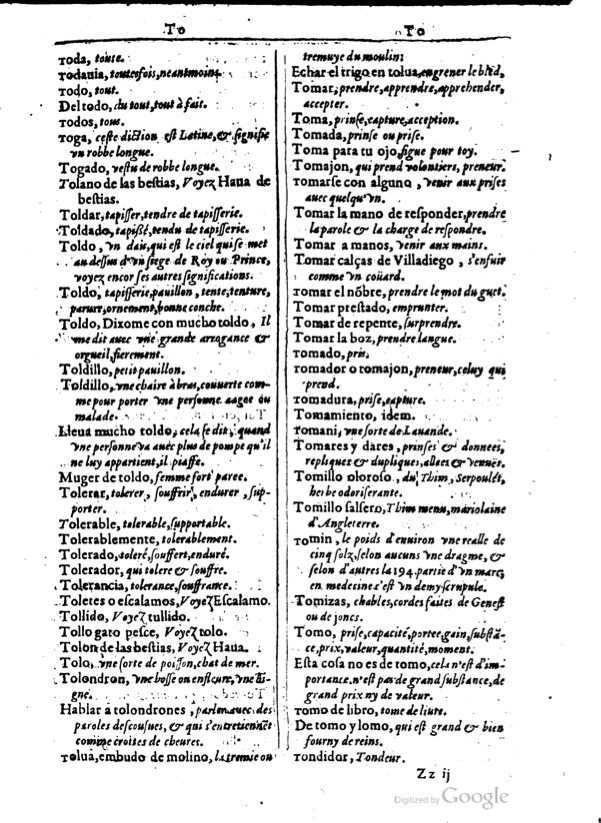 To
Toda, toute.
Todauia, toutesfois, neantmoins.
Todo, tout.
Del todo, du tout, tout à fait.
Todos, tous.
Toga, ceste diction est Latine, & signifie
vn robbe longue.
Togado, vestu de robbe longue.
Tolano de las bestias, Voyez Haua de
bestias.
Toldar, tapisser, tendre de tapisserie.
Toldado, tapissé, tendu de tapisserie.
Toldo, vn dais, qui est le ciel qui se met
au dessus d'vn siege de Roy ou Prince,
voyez encor ses autres significations.
Toldo, tapisserie, pauillon, tente, tenture,
parure, ornement, bonne conche.
Toldo, Dixome con mucho toldo, Il
me dit auec vne grande arrogance &
orgueil, fierement.
Toldillo, petit pauillon.
Toldillo, vne chaire à bras, couuerte com-
me pour porter vne personne aagee ou
malade.
Lleua mucho toldo, cela se dit, quand
vne personne va auec plus de pompe qu'il
ne luy appartient, il piaffe.
Muger de toldo, femme fort paree.
Tolerar, tolerer, souffrir, endurer, sup-
porter.
Tolerable, tolerable, supportable.
Tolerablemente, tolerablement.
Tolerado, toleré, souffert, enduré.
Tolerador, qui tolere & souffre.
Tolerancia, tolerance, souffrance.
Toletes o escalamos, Voyez Escalamo.
Tollido, Voyez tullido.
Tollo gato pesce, Voyez tolo.
Tolon de las bestias, Voyez Haua.
Tolo, vne sorte de poisson, chat de mer.
Tolondron, vne bosse ou enfleure, vne bi-
gne.
Hablar a tolondrones, parler auec des
paroles descousues, & qui s'entretiennẽt
comme crottes de cheures.
Tolua, embudo de molino, la tremie ou
To
tremuye du moulin:
Echar el trigo en tolua, engrener le bled,
Tomar, prendre, apprendre, apprehender,
accepter.
Toma, prinse, capture, acception.
Tomada, prinse ou prise.
Toma para tu ojo, figue pour toy.
Tomajon, qui prend volontiers, preneur.
Tomarse con alguno, venir aux prises
auec quelqu'vn.
Tomar la mano de responder, prendre
la parole & la charge de respondre.
Tomar a manos, venir aux mains.
Tomar calças de Villadiego, s'enfuir
comme vn coüard.
Tomar el nõbre, prendre le mot du guet.
Tomar prestado, emprunter.
Tomar de repente, surprendre.
Tomar la boz, prendre langue.
Tomado, pris.
Tomador o tomajon, preneur, celuy qui
prend.
Tomadura, prise, capture.
Tomamiento, idem.
Tomani, vne sorte de Lauande.
Tomares y dares, prinses & donnees,
repliques & dupliques, allees & venuës.
Tomillo oloroso, du Thim, Serpoulét,
herbe odoriferante.
Tomillo salsero, Thim menu, mariolaine
d'Angleterre.
Tomin, le poids d'enuiron vne realle de
cinq solz, selon aucuns vne dragme, &
selon d'autres la 194. partie d'vn marc,
en medecine c'est vn demy scrupule.
Tomizas, chables, cordes faites de Genest
ou de joncs.
Tomo, prise, capacité, portee, gain, substã-
ce, prix, valeur, quantité, moment.
Esta cosa no es de tomo, cela n'est d'im-
portance, n'est pas de grand substance, de
grand prix ny de valeur.
Tomo de libro, tome de liure.
De tomo y lomo, qui est grand & bien
fourny de reins.
Tondidor, Tondeur.
Zz ij
Digitized by Google